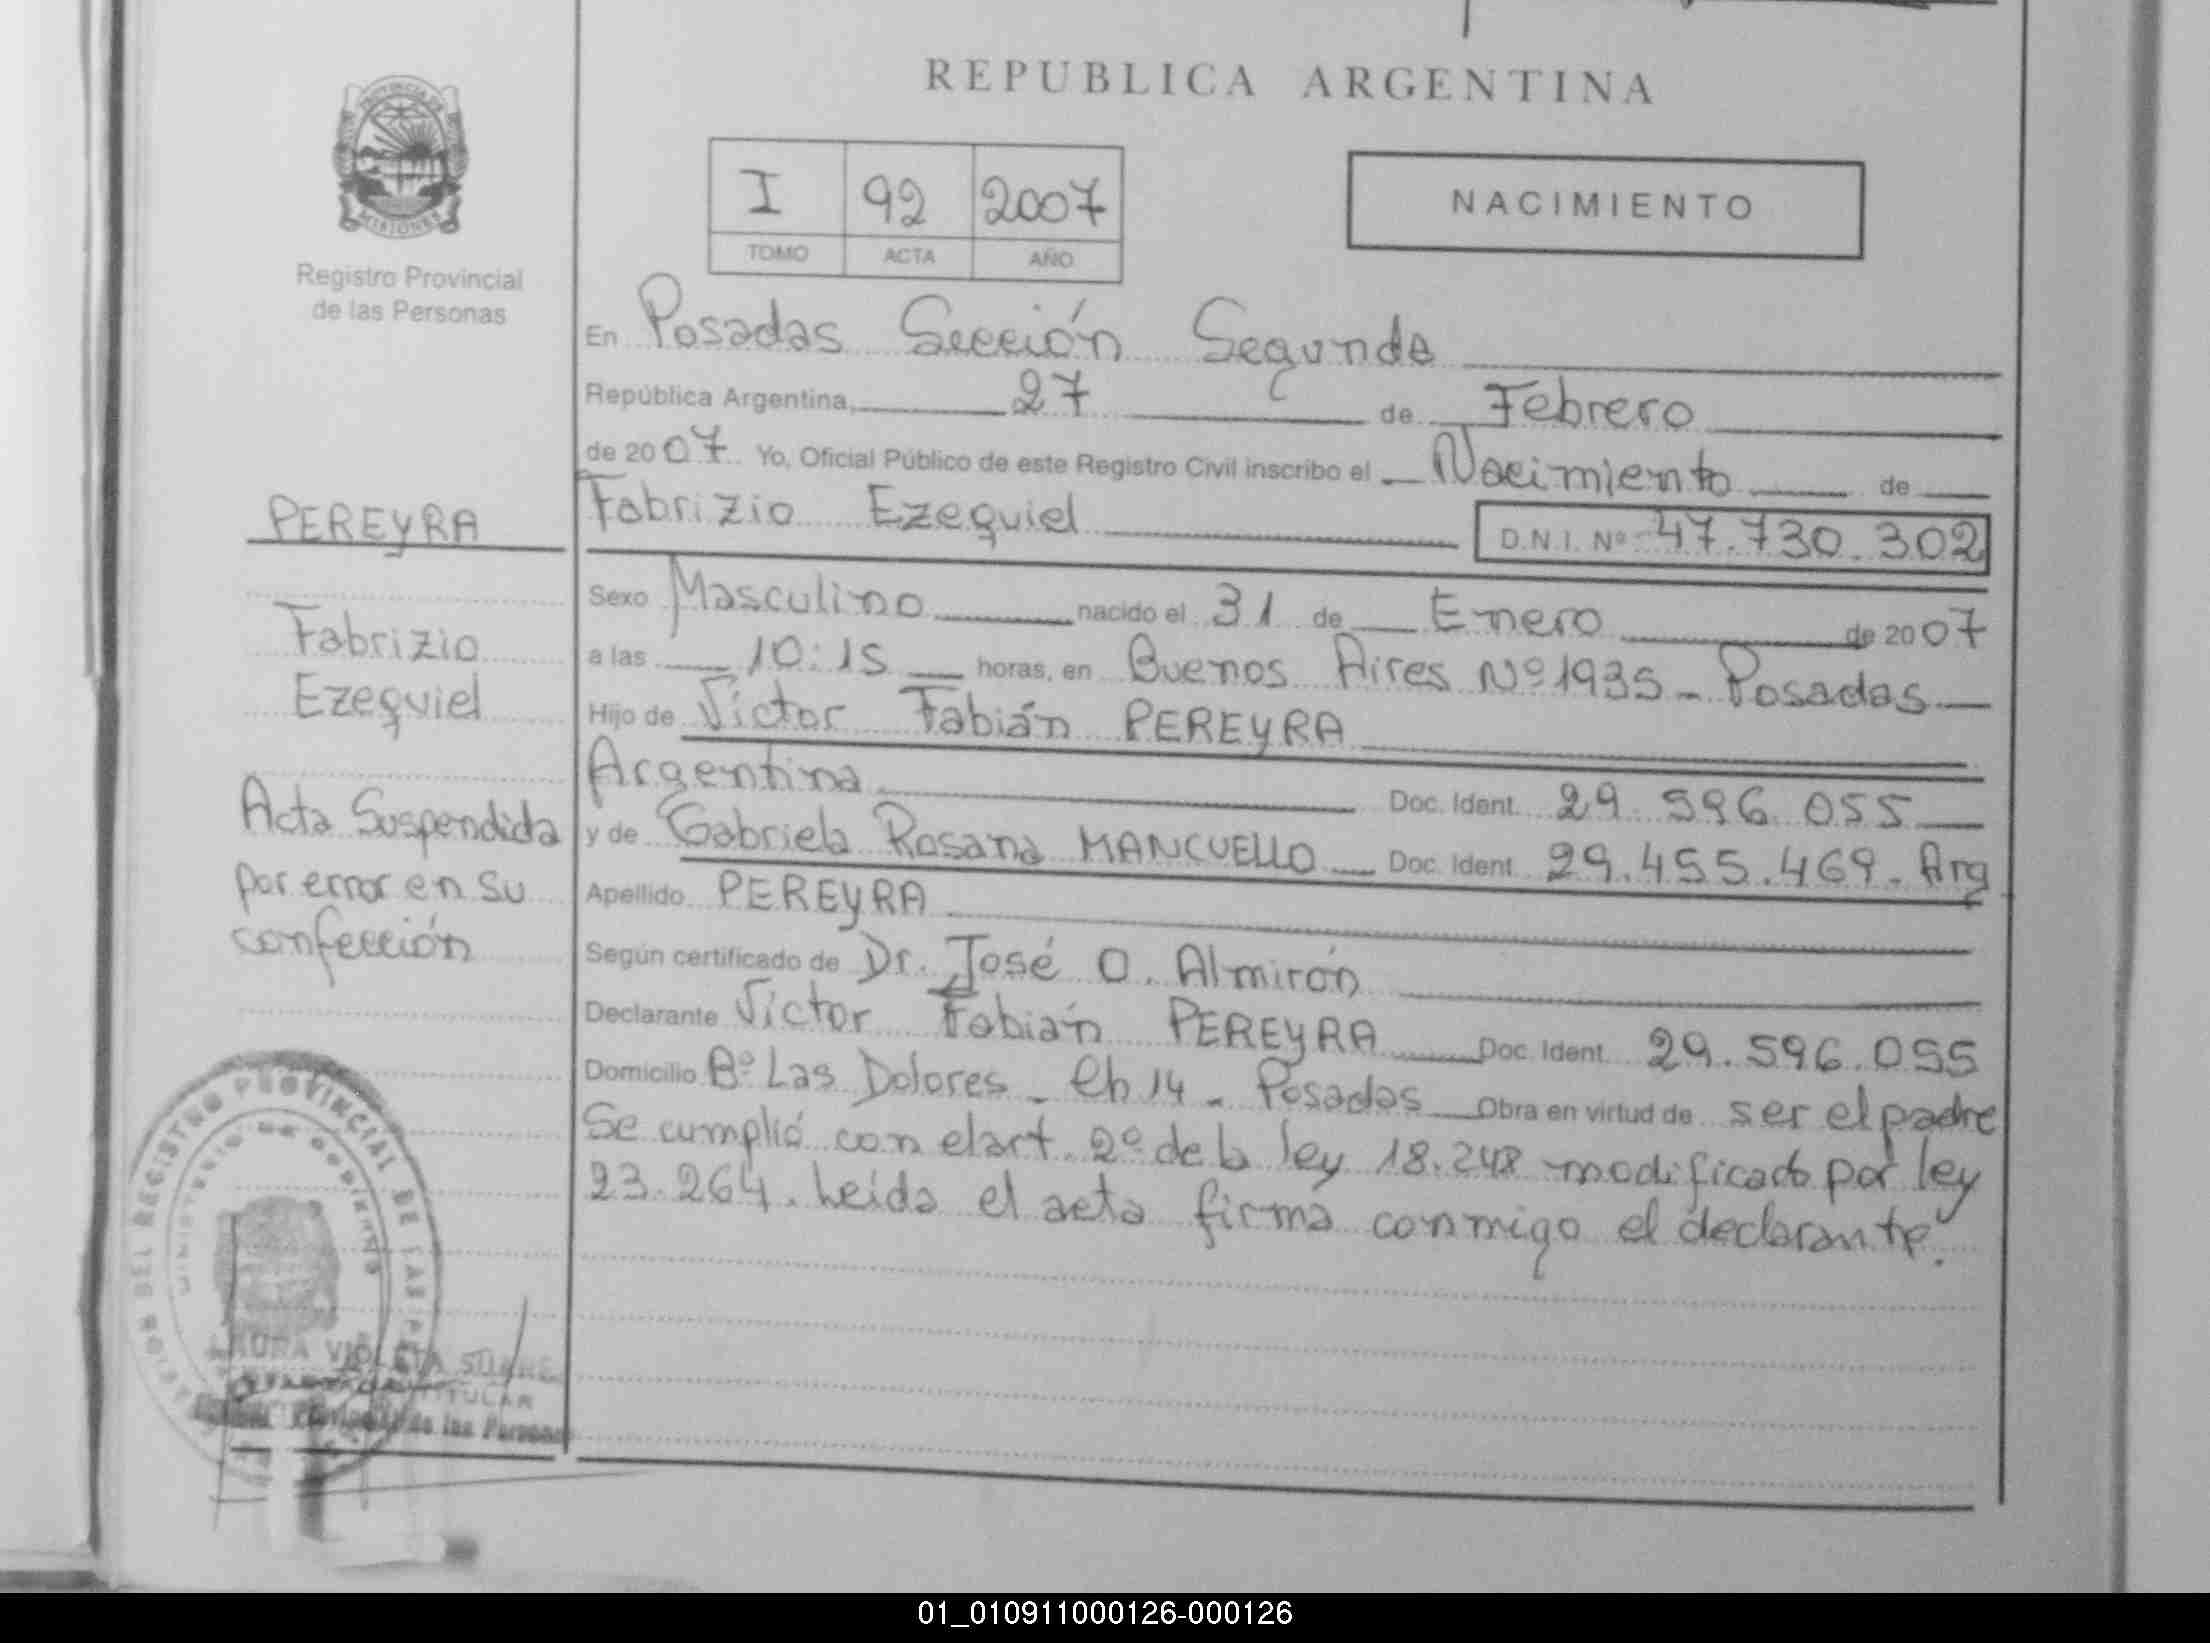 REPUBLICA ARGENTINA
PROVINCIA DE
MISIONES
Registro Provincial
de las Personas
I 92 2007
TOMO ACTA AÑO
NACIMIENTO
En Posadas Sección Segunda
República Argentina, 27 de Febrero
de 2007 Yo, Oficial Público de este Registro Civil inscribo el Nacimiento de
PEREYRA
Fabrizio Ezequiel D.N.I. Nº 47.730.302
Sexo Masculino nacido el 31 de Enero de 2007
Fabrizio
a las 10:15 horas, en Buenos Aires Nº 1935 - Posadas
Ezequiel
Hijo de Victor Fabián PEREYRA
Argentina Doc. Ident. 29.596.055
Acta Suspendida
y de Gabriela Rosana MANCUELLO Doc. Ident. 29.455.469. Arg
por error en su
Apellido PEREYRA
confección
Según certificado de Dr. José O. Almirón
Declarante Victor Fabián PEREYRA Doc. Ident. 29.596.055
Domicilio Bº Las Dolores - Ch 14 - Posadas Obra en virtud de ser el padre
Se cumplió con el art. 2º de la ley 18.248 modificado por ley
23.264. Leída el acta firma conmigo el declarante.
REGISTRO PROVINCIAL DE LAS
MINISTERIO DE GOBIERNO
VIOLETA
TITULAR
de las Personas
01_010911000126-000126